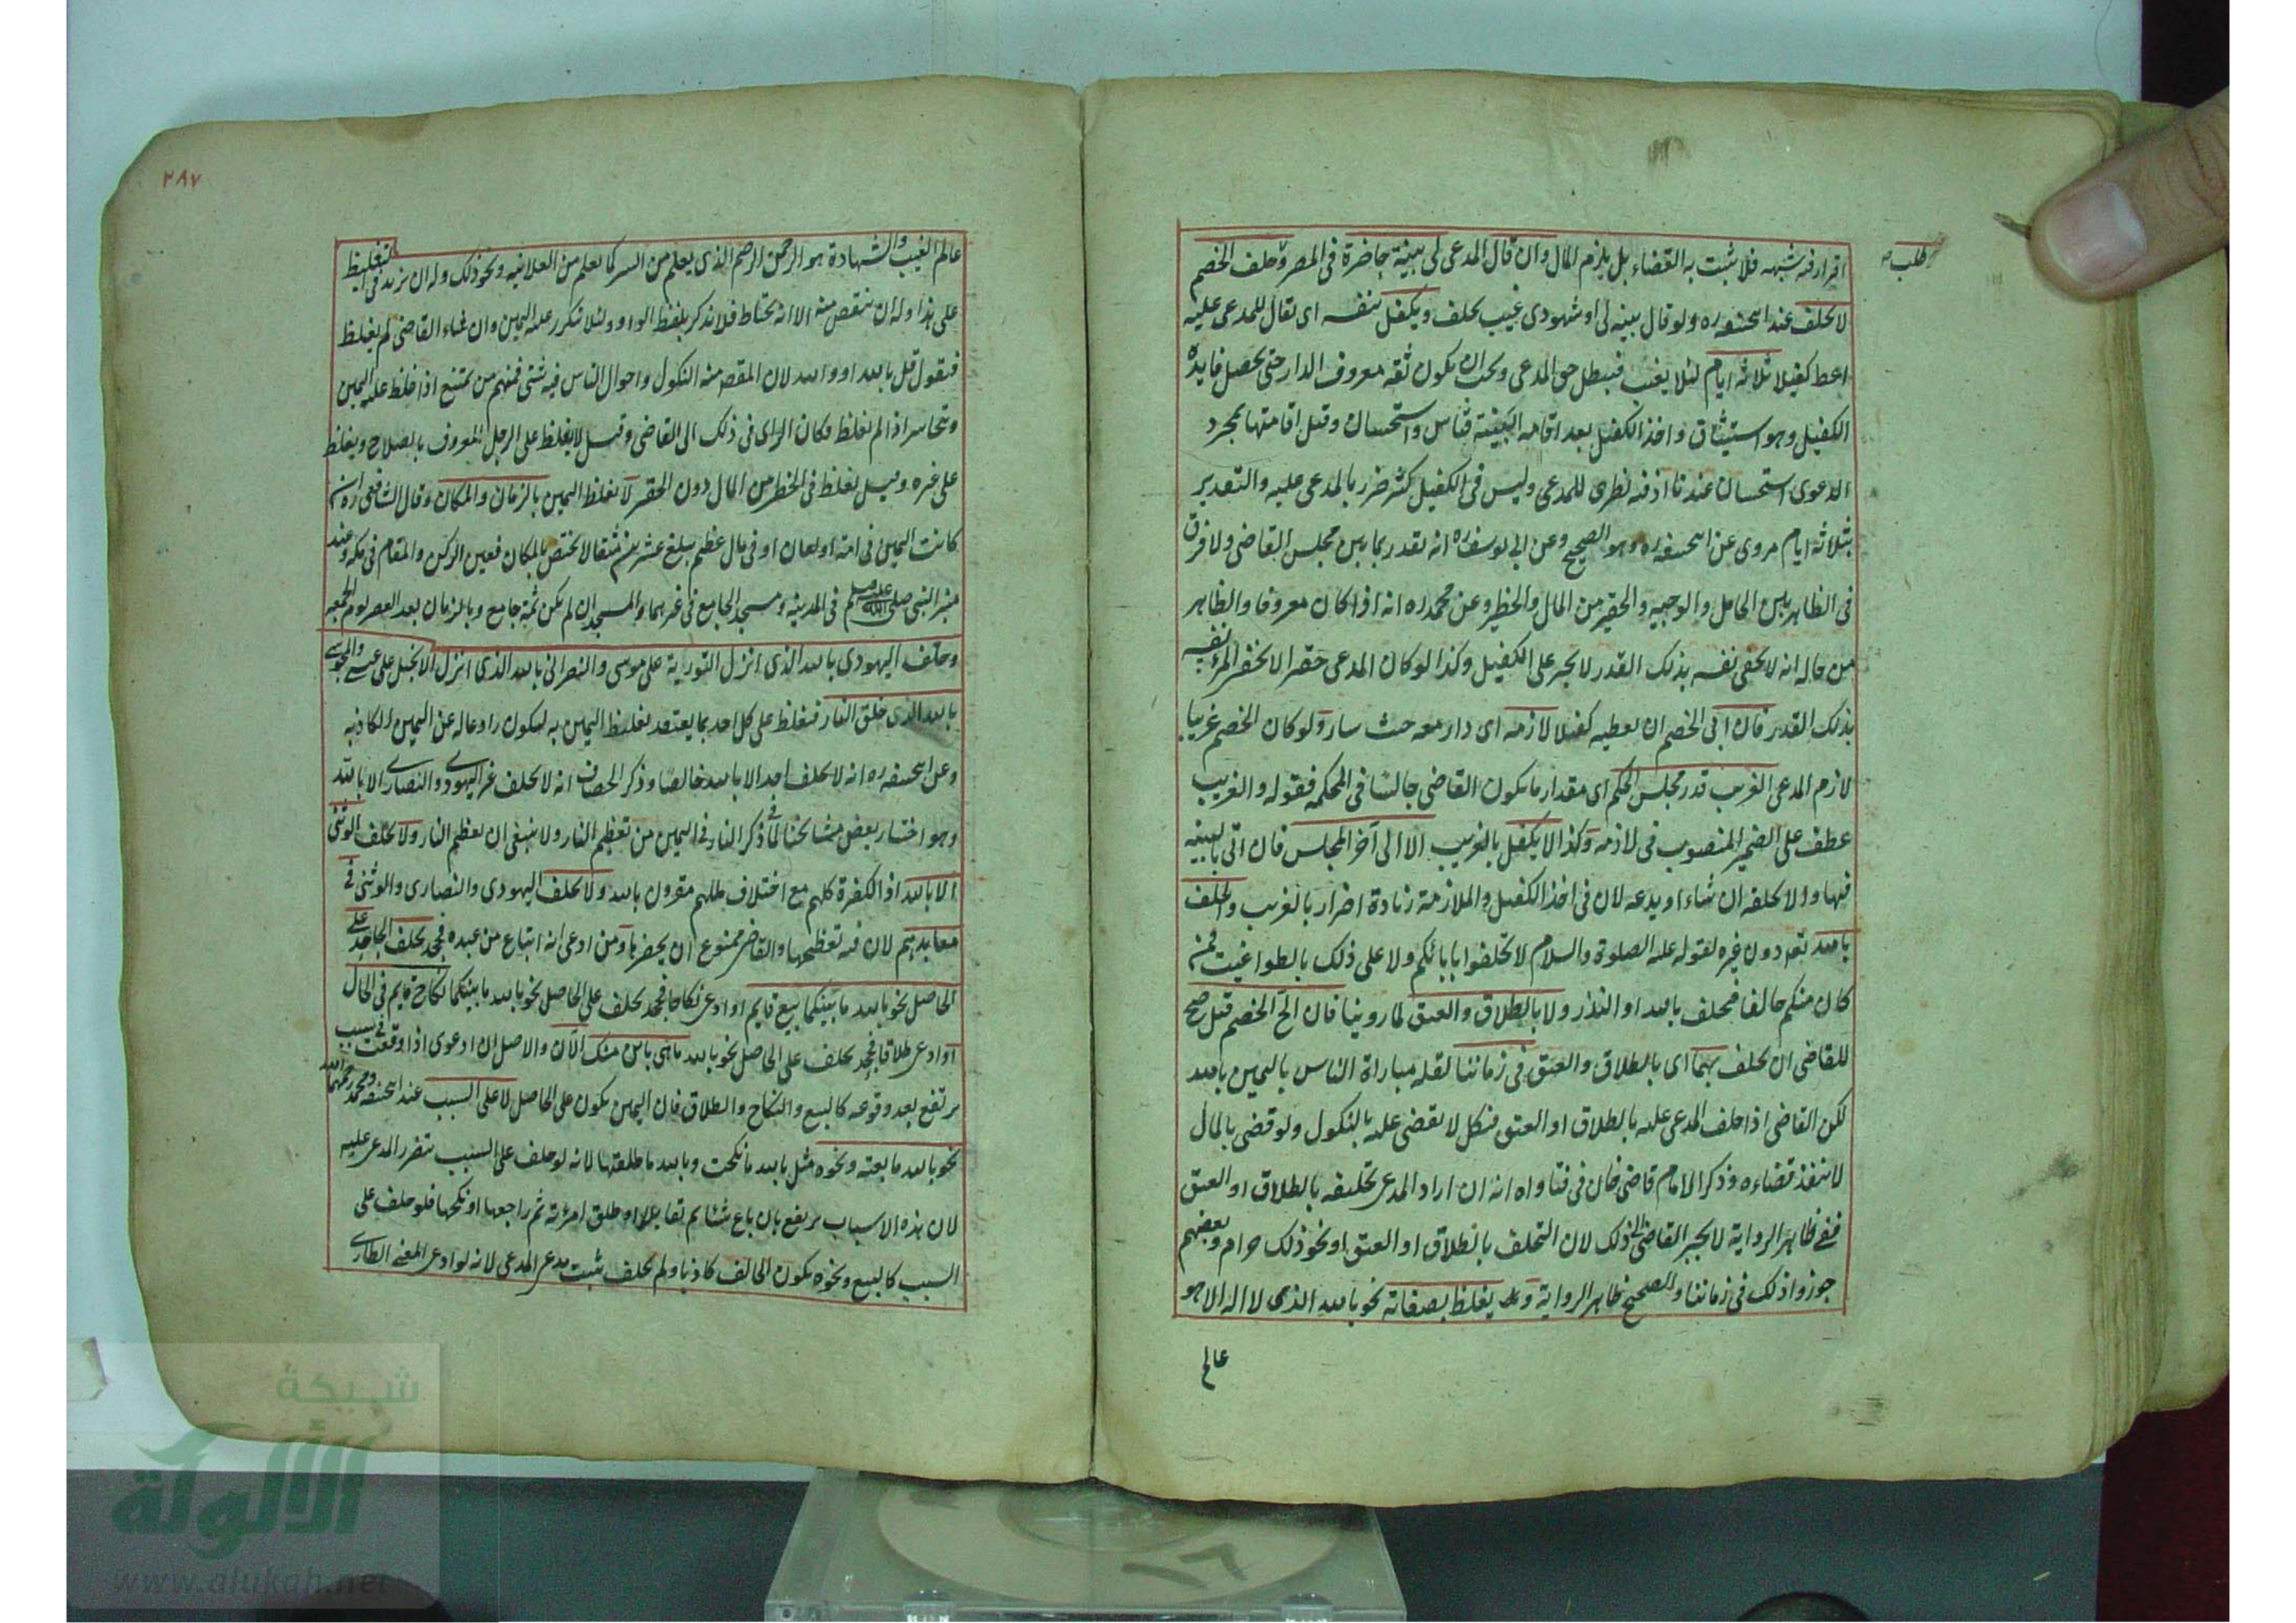 طلب
اقرار فيه شبهه فلا يثبت به القضاء بل يلزم المال وان قال المدعى لى بينة حاضرة فى المصر وحلف الخصم
لا يحلف عند ابيحنيفه ره ولو قال بينه لى او شهودى غيب يحلف ويكفل بنفسه اى يقال للمدعى عليه
اعط كفيلا ثلاثه ايام لئلا يغيب فيبطل حق المدعى ويجب ان يكون ثقه معروف الدار حتى يحصل فايدة
الكفيل وهو استيثاق واخذ الكفيل بعد اقامه البينة قياس واستحسان وقبل اقامتها بمجرد
الدعوى استحسان عندنا اذ فيه نظرى للمدعى وليس فى الكفيل كثير ضرر بالمدعى عليه والتقدير
بثلاثه ايام مروى عن ابيحنيفه ره وهو الصحيح وعن ابى يوسف ره انه يقدر بما بين مجلس القاضى ولا فرق
فى الظاهر بين الخامل والوجيه والحقير من المال والخطير وعن محمد ره انه اذا كان معروفا والظاهر
من حاله انه لا يخفى نفسه بذلك القدر لا يجبر على الكفيل وكذا لو كان المدعى حقيرا لا يخفى المرء نفسه
بذلك القدر فان ابى الخصم ان يعطيه كفيلا لازمه اى دار معه حيث سار ولو كان الخصم غريبا
لازم المدعى الغريب قدر مجلس الحكم اى مقدار ما يكون القاضى جالسا فى المحكمه فقوله والغريب
عطف على الضمير المنصوب فى لازمه وكذا لا يكفل بالغريب الا الى آخر المجلس فان اتى ببينه
فبها والا يحلفه ان شاء او يدعه لان فى اخذ الكفيل والملازمة زيادة اضرار بالغريب والحلف
بالله تعالى دون غيره لقوله عليه الصلوة والسلام لا تحلفوا بابائكم ولا على ذلك بالطواغيت فمن
كان منكم حالفا فيحلف بالله او النذر ولا بالطلاق والعتق لما روينا فان الح الخصم قيل صح
للقاضى ان يحلف بهما اى بالطلاق والعتق فى زماننا لقلة مباراة الناس باليمين بالله
لكن القاضى اذا حلف المدعى عليه بالطلاق او العتق فنكل لا يقضى عليه بالنكول ولو قضى بالمال
لا ينفذ قضاءه وذكر الامام قاضى خان فى فتاواه انه ان اراد المدعى تحليفه بالطلاق او العتق
ففى ظاهر الرواية لا يجبر القاضى الى ذلك لان التحلف بالطلاق او العتق او نحو ذلك حرام وبعضهم
جوزوا ذلك فى زماننا والصحيح ظاهر الرواية ويغلظ بصفاته نحو بالله الذى لا اله الا هو
عالم
٢٨٧
عالم الغيب والشهادة هو الرحمن الرحيم الذى يعلم من السر كما يعلم من العلانيه ونحو ذلك وله ان يزيد فى التغليظ
على هذا وله ان ينقص منه الا انه يحتاط فلا يذكر بلفظ الواو ولئلا يتكرر عليه اليمين وان شاء القاضى لم يغلظ
فيقول قل بالله او والله لان المقصد منه النكول واحوال الناس فيه شتى فمنهم من يمتنع اذا غلظ عليه اليمين
ويتجاسر اذا لم يغلظ فكان الراى فى ذلك الى القاضى وقيل لا يغلظ على الرجل المعروف بالصلاح ويغلظ
على غيره وقيل يغلظ فى الخطر من المال دون الحقير لا يغلظ اليمين بالزمان والمكان وقال الشافعى ره ان
كانت اليمين فى امة او لعان او فى مال عظيم يبلغ عشرين مثقالا يختص بالمكان فعين الركن والمقام فى مكه وعند
منبر النبى صلى الله عليه وسلم فى المدينه ومسجد الجامع فى غيرهما والمسجد ان لم يكن ثمة جامع وبالزمان بعد العصر يوم الجمعه
وحلف اليهودى بالله الذى انزل التورية على موسى والنصرانى بالله الذى انزل الانجيل على عيسى والمجوسى
بالله الذى خلق النار فيغلظ على كل احد بما يعتقد تغليظ اليمين به ليكون رادعا له عن اليمين الكاذبه
وعن ابيحنيفه ره انه لا يحلف احد الا بالله خالصا وذكر الخصاف انه لا يحلف غير اليهودى والنصارى الا بالله
وهو اختيار بعض مشايخنا لما فى ذكر النار فى اليمين من تعظيم النار ولا ينبغى ان يعظم النار ولا يحلف الوثنى
الا بالله اذ الكفرة كلهم مع اختلاف مللهم مقرون بالله ولا يحلف اليهودى والنصارى والوثنى فى
معابدهم لان فيه تعظيمها والقاضى ممنوع ان يحضرها ومن ادعى انه ابتاع من عبده فجحد يحلف الجاحد على
الحاصل نحو بالله ما بينكما بيع قايم او ادعى نكاحا فجحد يحلف على الحاصل نحو بالله ما بينكما نكاح قايم فى الحال
او ادعى طلاقا فجحد يحلف على الحاصل نحو بالله ما هى باين منك الآن والاصل ان ادعوى اذا وقعت فى سبب
يرتفع بعد وقوعه كالبيع والنكاح والطلاق فان اليمين يكون على الحاصل لا على السبب عند ابيحنيفه ومحمد رحمهما الله
نحو بالله ما بعته ونحوه مثل بالله ما نكحت وبالله ما طلقتها لانه لو حلف على السبب يتضرر المدعى عليه
لان هذه الاسباب يرتفع بان باع شيئا ثم تقايلا او طلق امرئته ثم راجعها او نكحها فلو حلف على
السبب كالبيع ونحوه يكون الحالف كاذبا ولم يحلف يثبت مدعى المدعى لانه لو ادعى المعنى الطارى
شبكة
الألوكة
www.alukah.net